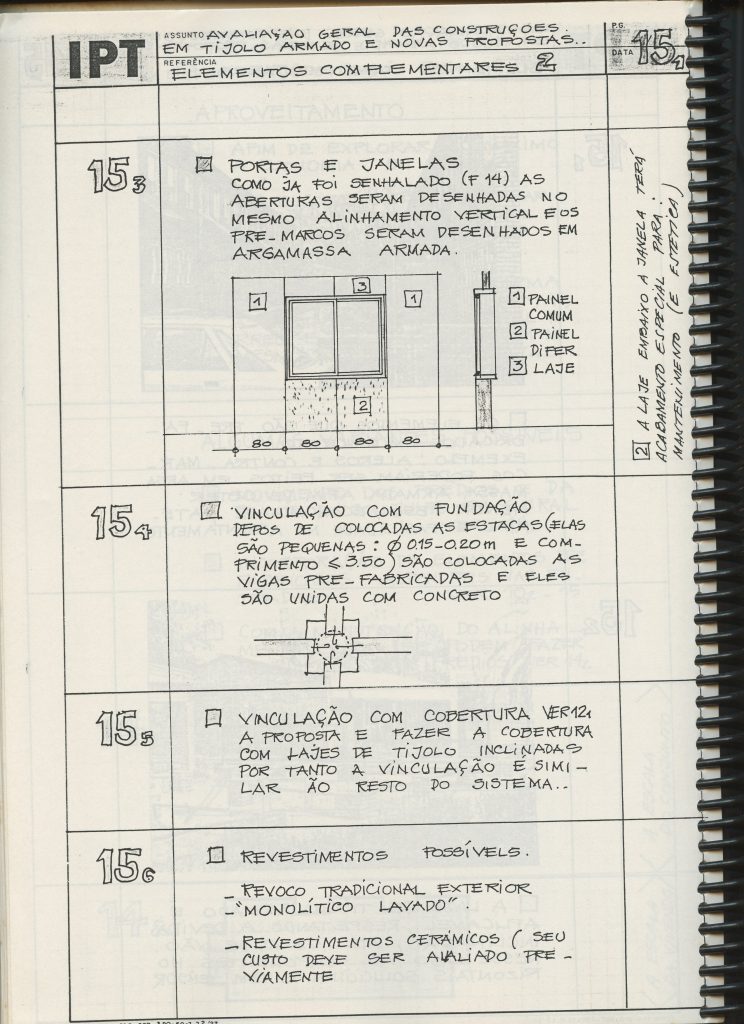 IPT
ASSUNTO AVALIAÇÃO GERAL DAS CONSTRUÇÕES
EM TIJOLO ARMADO E NOVAS PROPOSTAS..
REFERÊNCIA
ELEMENTOS COMPLEMENTARES 2
P.G.
DATA
15,1
15 3
PORTAS E JANELAS
COMO JA FOI SENHALADO (F 14) AS
ABERTURAS SERAM DESENHADAS NO
MESMO ALINHAMENTO VERTICAL E OS
PRE-MARCOS SERAM DESENHADOS EM
ARGAMASSA ARMADA.
1
3
1
2
80 80 80 80
1 PAINEL
COMUM
2 PAINEL
DIFER
3 LAJE
2 A LAJE EMBAIXO A JANELA TERÁ
ACABAMENTO ESPECIAL PARA:
MANTENIMENTO (E ESTÉTICA)
15 4
VINCULAÇÃO COM FUNDAÇÃO
DEPOS DE COLOCADAS AS ESTACAS (ELAS
SÃO PEQUENAS: Ø 0.15-0.20m E COM-
PRIMENTO ≤ 3.50) SÃO COLOCADAS AS
VIGAS PRE-FABRICADAS E ELES
SÃO UNIDAS COM CONCRETO
15 5
VINCULAÇÃO COM COBERTURA VER 12,1
A PROPOSTA E FAZER A COBERTURA
COM LAJES DE TIJOLO INCLINADAS
POR TANTO A VINCULAÇÃO É SIMI-
LAR ÃO RESTO DO SISTEMA..
15 6
REVESTIMENTOS POSSÍVELS.
- REVOCO TRADICIONAL EXTERIOR
- "MONOLÍTICO LAVADO".
- REVESTIMENTOS CERÁMICOS (SEU
CUSTO DEVE SER AVALIADO PRE-
VIAMENTE